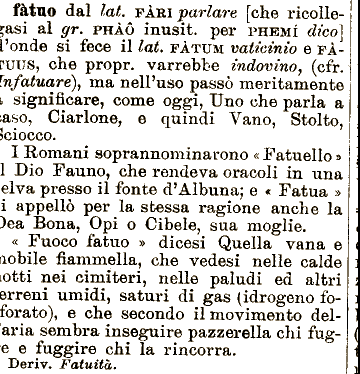 fàtuo dal lat. FÀRI parlare [che ricolle-
gasi al gr. PHÀÔ inusit. per PHEMÍ dico]
d'onde si fece il lat. FÀTUM vaticinio e FÀ-
TUUS, che propr. varrebbe indovino, (cfr.
Infatuare), ma nell'uso passò meritamente
a significare, come oggi, Uno che parla a
caso, Ciarlone, e quindi Vano, Stolto,
Sciocco.
I Romani soprannominarono «Fatuello»
il Dio Fauno, che rendeva oracoli in una
selva presso il fonte d'Albuna; e « Fatua »
si appellò per la stessa ragione anche la
Dea Bona, Opi o Cibele, sua moglie.
« Fuoco fatuo » dicesi Quella vana e
mobile fiammella, che vedesi nelle calde
notti nei cimiteri, nelle paludi ed altri
terreni umidi, saturi di gas (idrogeno fo-
sforato), e che secondo il movimento del-
l'aria sembra inseguire pazzerella chi fug-
ge e fuggire chi la rincorra.
Deriv. Fatuità.